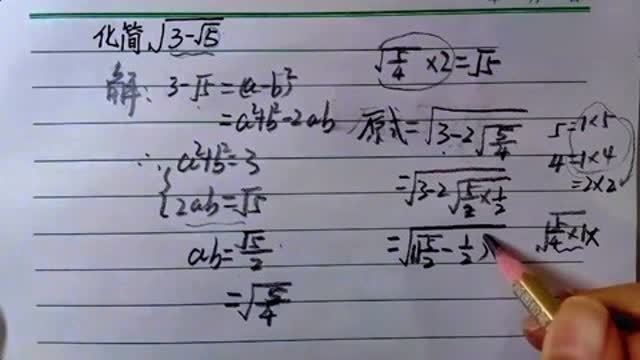 化简√(3-√5)
解: 3-√5=(a-b)²
=a²+b²-2ab
∴ { a²+b²=3
2ab=√5
ab=√5/2
=√(5/4)
√(5/4)×2=√5
原式=√(3-2√(5/4))
=√(3-2√(5/2×1/2))
=√((√(5/2)-1/2)
5=1×5
4=1×4
=2×2
√(5/4×1×